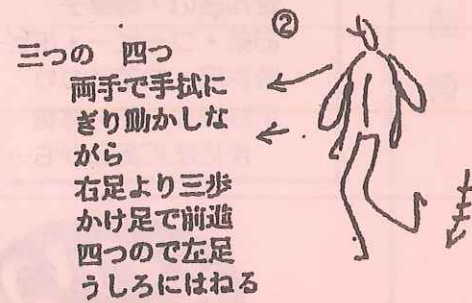 ②
三つの　四つ
両手で手拭に
ぎり動かしな
がら
右足より三歩
かけ足で前進
四つので左足
うしろにはねる